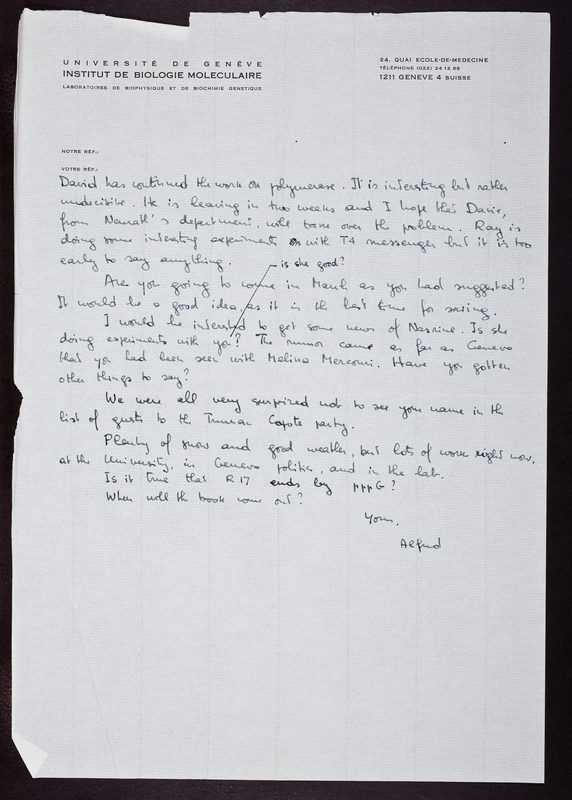 UNIVERSITÉ DE GENÈVE
INSTITUT DE BIOLOGIE MOLECULAIRE
LABORATOIRES DE BIOPHYSIQUE ET DE BIOCHIMIE GENETIQUE
24, QUAI ECOLE-DE-MEDECINE
TÉLÉPHONE (022) 24 12 66
1211 GENEVE 4 SUISSE
NOTRE RÉF.:
VOTRE RÉF.:
David has continued the work on polymerase. It is interesting but rather
undecisive. He is leaving in two weeks and I hope that Davie,
from department, will take over the problem. Ray is
doing some interesting experiments with T4 messenger but it is too
early to say anything.
is she good?
Are you going to come in March as you had suggested?
It would be a good idea, as it is the best time for skiing.
I would be interested to get some news of Nasrine. Is she
doing experiments with you? The rumor came as far as Geneva
that you had been seen with Melina Mercouri. Have you gotten
other things to say?
We were all very surprized not to see your name in the
list of guests to the Truman Capote party.
Plenty of snow and good weather, but lots of work right now,
at the University, in Geneva politics, and in the lab.
Is it true that R17 ends by pppG?
When will the book come out?
Yours,
Alfred